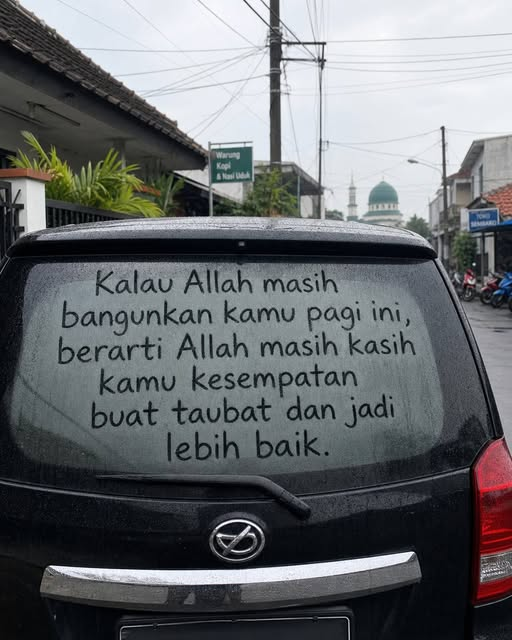 Warung
Kopi
& Nasi Uduk
TOKO
SEMBAKO
Kalau Allah masih
bangunkan kamu pagi ini,
berarti Allah masih kasih
kamu kesempatan
buat taubat dan jadi
lebih baik.